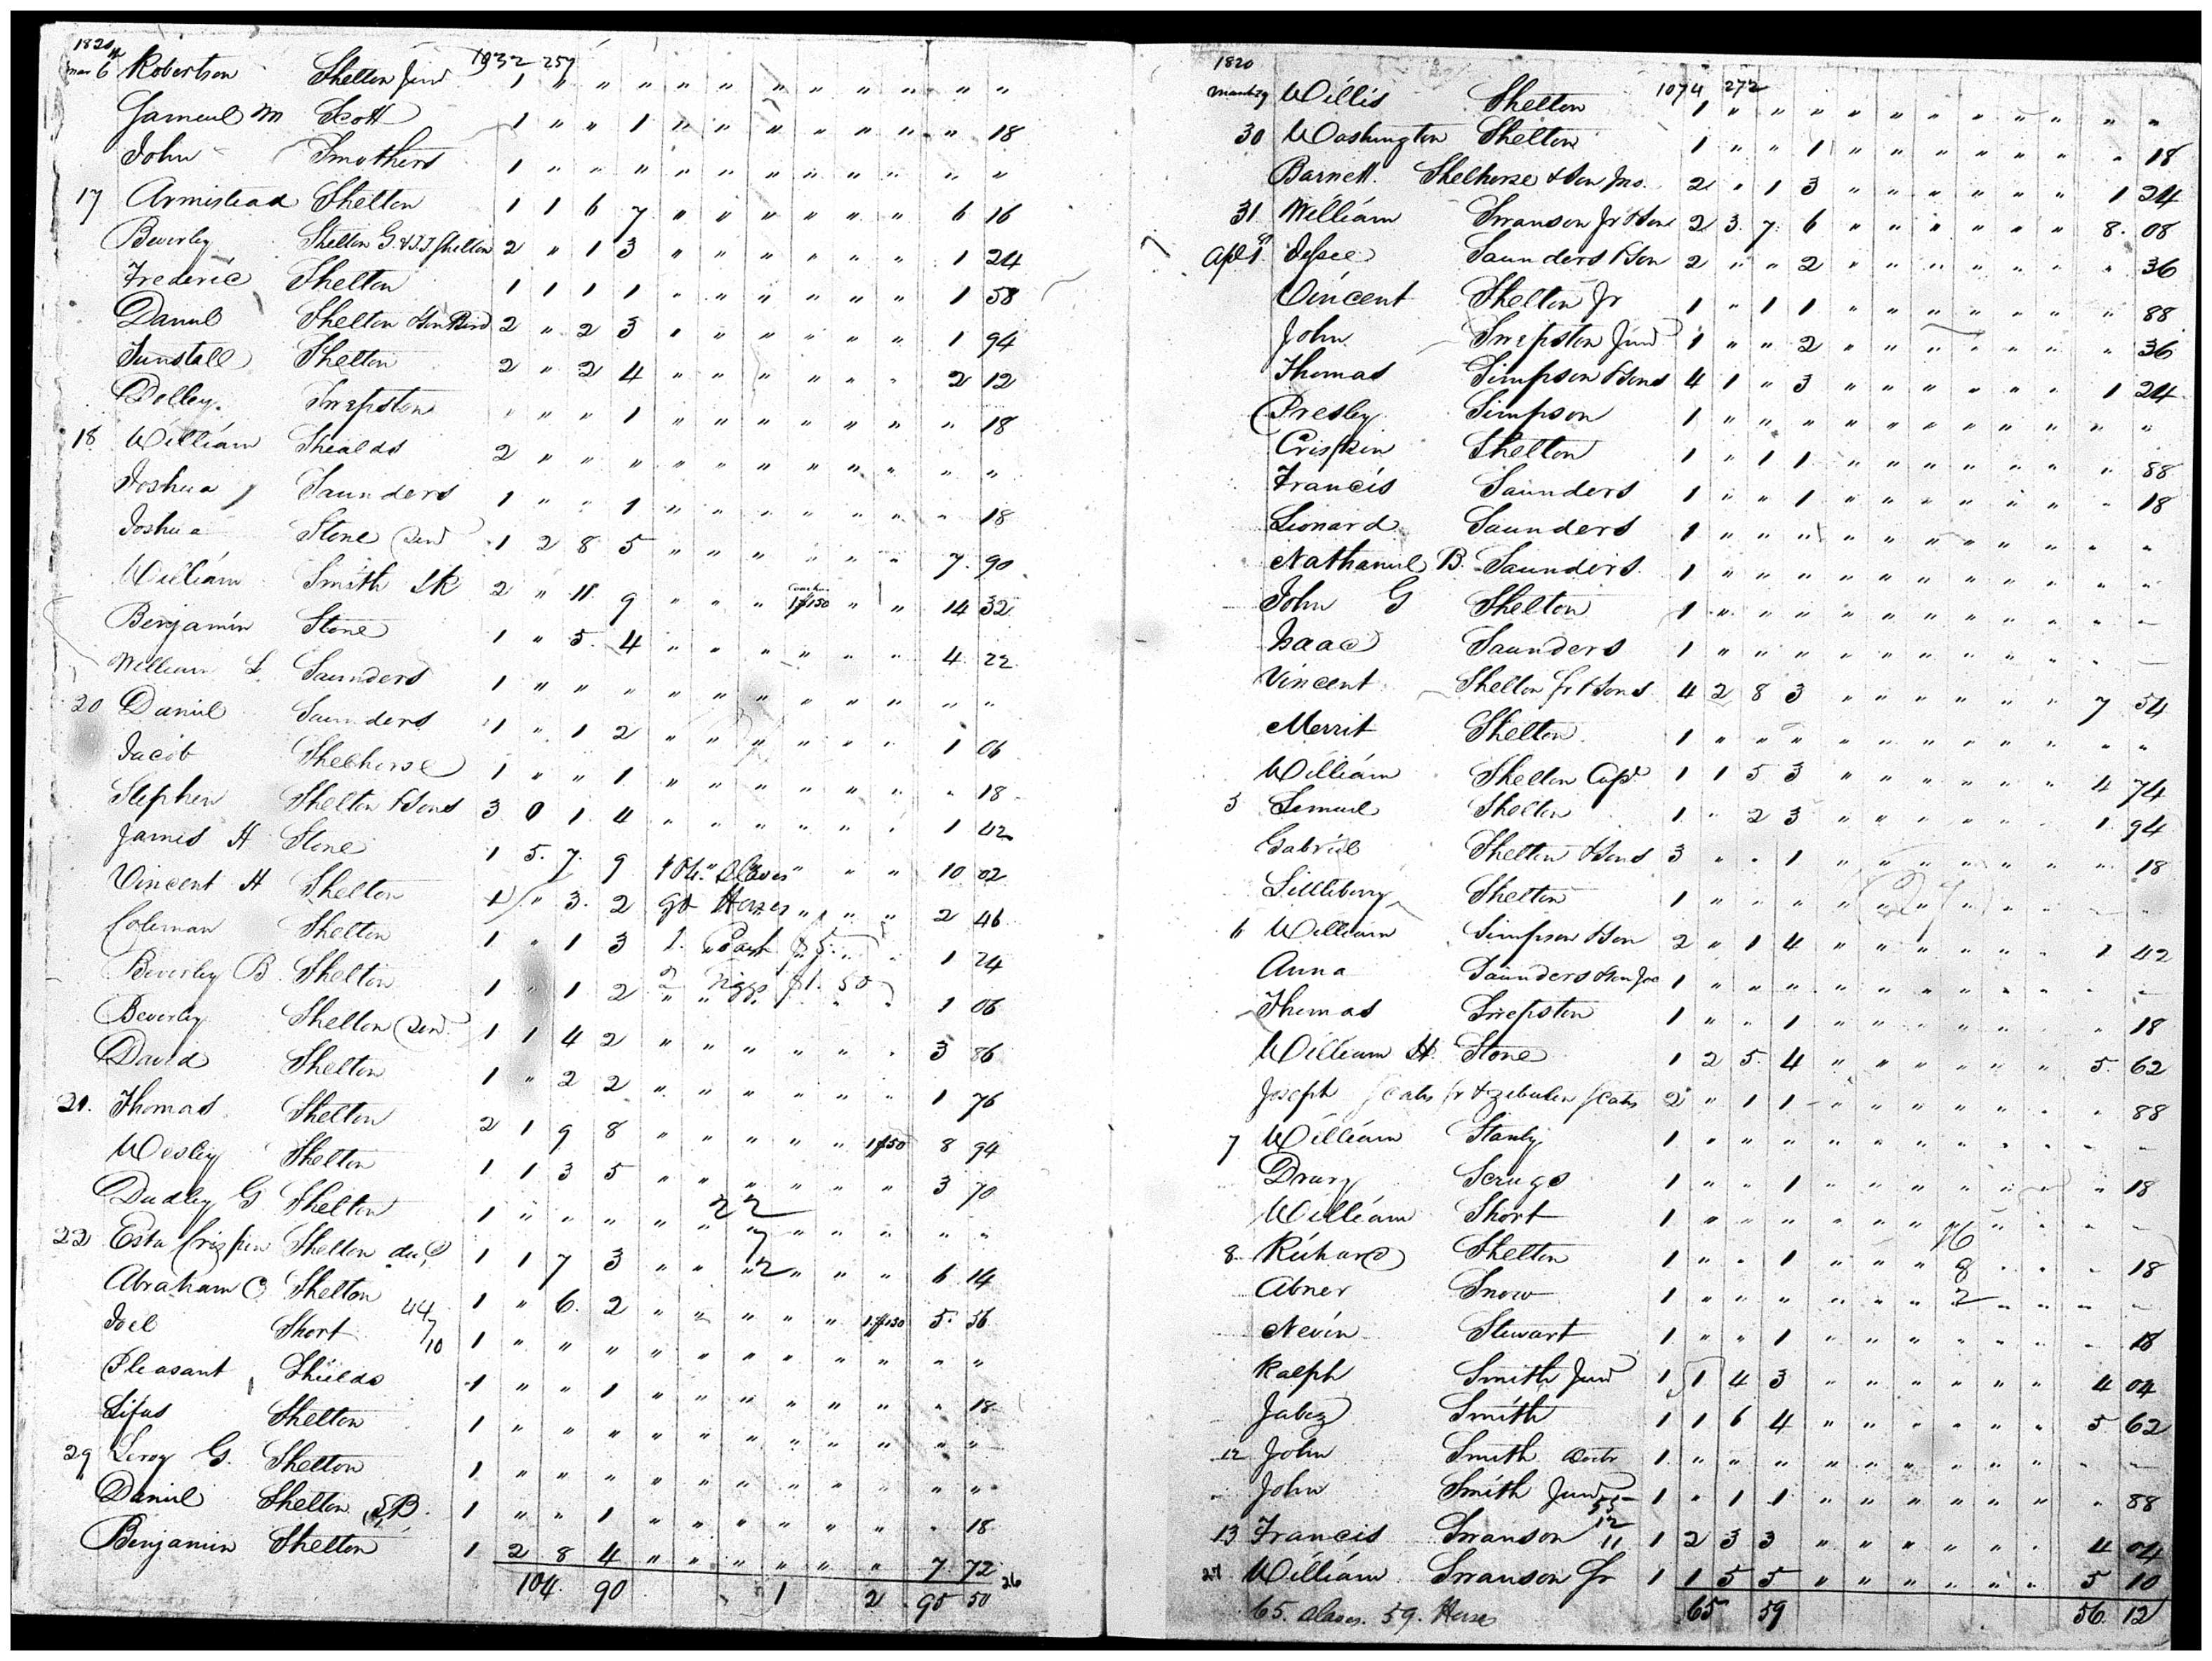 1820
1032 259
Mar 6th Robertson Shelton Junr 1 " " " " " " " " " " " "
Samuel M Scott 1 " " 1 " " " " " " " " 18
John Smothers 1 " " " " " " " " " " " "
17 Armistead Shelton 1 1 6 7 " " " " " " " 6 16
Beverley Shelton G. & T.T. Shelton 2 " 1 3 " " " " " " " 1 24
Frederic Shelton 1 1 1 1 " " " " " " " 1 58
Daniel Shelton & Son Bird 2 " 2 3 " " " " " " " 1 94
Tunstall Shelton 2 " 2 4 " " " " " " " 2 12
Dolley Swepston " " " 1 " " " " " " " " 18
18 William Shealds 2 " " " " " " " " " " " "
Joshua Saunders 1 " " 1 " " " " " " " " 18
Joshua Stone Senr 1 2 8 5 " " " " " " " 7 90
William Smith 2 " 11 9 " " " Coach 1 $150 " " 14 32
Benjamin Stone 1 " 5 4 " " " " " " " 4 22
William L. Saunders 1 " " " " " " " " " " " "
20 Daniel Saunders 1 " 1 2 " " " " " " " 1 06
Jacob Shelhorse 1 " " 1 " " " " " " " " 18
Stephen Shelton & Sons 3 0 1 4 " " " " " " " 1 42
James H Stone 1 5 7 9 104 " Slaves " " " 10 02
Vincent H Shelton 1 " 3 2 90 Horses " " " " 2 46
Coleman Shelton 1 " 1 3 1 " " " 1 24
Beverley B Shelton 1 " 1 2 2 Niggs $1.50 1 06
Beverley Shelton Senr 1 1 4 2 " " " " " " " 3 86
David Shelton 1 " 2 2 " " " " " " " 1 76
21. Thomas Shelton 2 1 9 8 " " " " " " 1 $150 8 94
Wesley Shelton 1 1 3 5 " " " " " " " 3 70
Dudley G Shelton 1 " " " " " 22 " " " " " "
22 Esta Crispin Shelton decd 1 1 7 3 " " " " " " 6 14
Abraham C Shelton 44 1 " 6 2 " " " " " " 1 $150 5 56
Joel Short 1 " " " " " " " " " " " "
Pleasant Shields 1 " " 1 " " " " " " " " 18
Lifus Shelton 1 " " " " " " " " " " " "
29 Leroy G. Shelton 1 " " " " " " " " " " " "
Daniel Shelton S,B. 1 " " 1 " " " " " " " " 18
Benjamin Shelton 1 2 8 4 " " " " " " " 7 72
104 90 1 2 95 50 26
1820
1074 272
March 29 Willis Shelton 1 " " " " " " " " " " " "
30 Washington Shelton 1 " " 1 " " " " " " " " 18
Barnett Shelhorse & Son Jno. 2 " 1 3 " " " " " " " 1 24
31 William Swanson Jr & Son 2 3 7 6 " " " " " " " 8 08
Apl 1st Jesse Saunders & Son 2 " " 2 " " " " " " " " 36
Vincent Shelton Jr 1 " 1 1 " " " " " " " " 88
John Swepston Junr 1 " " 2 " " " " " " " " 36
Thomas Simpson & Sons 4 1 " 3 " " " " " " " 1 24
Presley Simpson 1 " " " " " " " " " " " "
Crispin Shelton 1 " 1 1 " " " " " " " " 88
Francis Saunders 1 " " 1 " " " " " " " " 18
Lionard Saunders 1 " " " " " " " " " " " "
Nathaniel B. Saunders 1 " " " " " " " " " " " "
John G Shelton 1 " " " " " " " " " " " "
Isaac Saunders 1 " " " " " " " " " " " "
Vincent Shelton Sr & Sons 4 2 8 3 " " " " " " " 7 54
Merrit Shelton 1 " " " " " " " " " " " "
William Shelton Capt 1 1 5 3 " " " " " " " 4 74
5 Lemuel Shelton 1 " 2 3 " " " " " " " 1 94
Gabriel Shelton & Sons 3 " " 1 " " " " " " " " 18
Littleberry Shelton 1 " " " " " " " " " " " "
6 William Simpson & Son 2 " 1 4 " " " " " " " 1 42
Anna Saunders & Son 1 " " " " " " " " " " " "
Thomas Swepston 1 " " 1 " " " " " " " " 18
William H. Stone 1 2 5 4 " " " " " " " 5 62
Joseph Scates Sr & Zebulon Scates 2 " 1 1 " " " " " " " " 88
7 William Stanly 1 " " " " " " " " " " " "
Drury Scrugs 1 " " 1 " " " " " " " " 18
William Short 1 " " " " " " " " " " " "
8 Richard Shelton 1 " " 1 " " " " 8 " " " 18
Abner Snow 1 " " " " " " " 2 " " " "
Nevin Stewart 1 " " 1 " " " " " " " " 18
Ralph Smith Junr 1 1 4 3 " " " " " " " 4 04
Jabez Smith 1 1 6 4 " " " " " " " 5 62
12 John Smith Doctr 1 " " " " " " " " " " " "
John Smith Junr 1 " 1 1 " " " " " " " " 88
13 Francis Swanson 1 2 3 3 " " " " " " " 4 04
27 William Swanson Sr 1 1 5 5 " " " " " " " 5 10
65 Slaves. 59. Horses 65 59 56 12